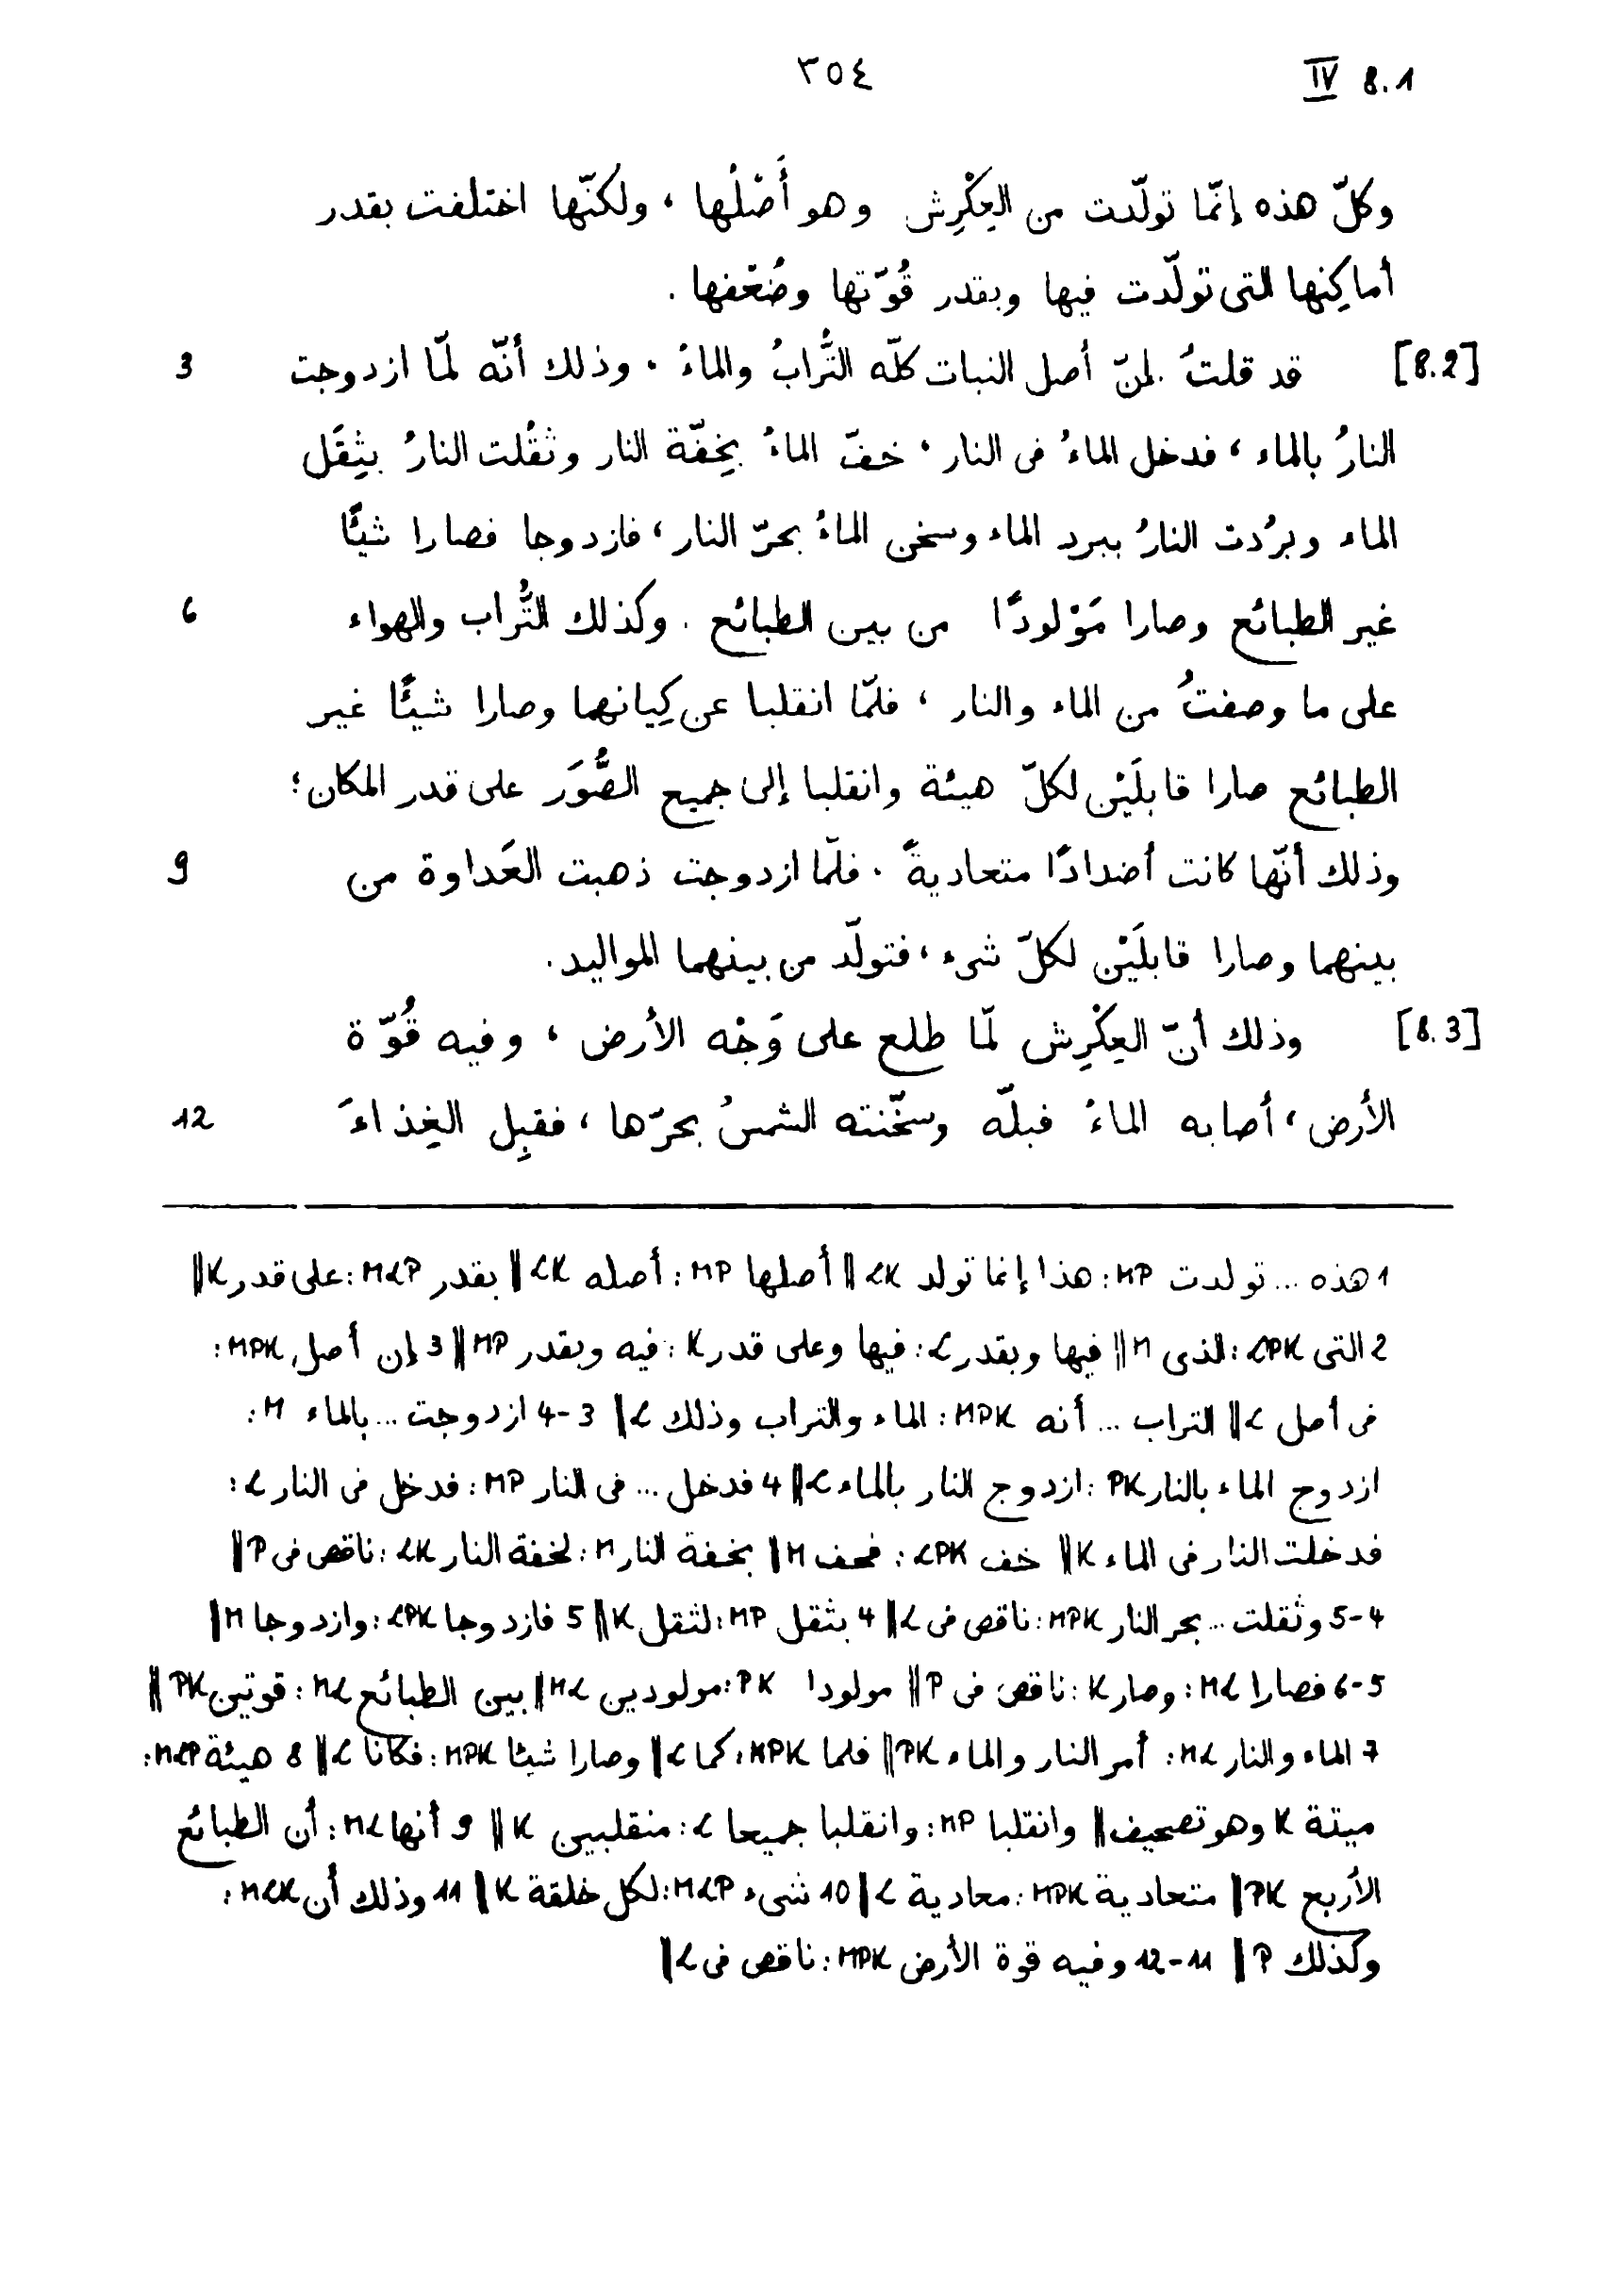 ٣٥٤
IV 8.1
وكلّ هذه إنّما تولّدت من العِكْرِش وهو أَصْلُها ، ولكنّها اختلفت بقدر
أماكِنها التى تولّدت فيها وبقدر قُوّتها وضُعْفها .
[8.2] قد قلتُ إنّ أصل النبات كلّه التُّرابُ والماءُ . وذلك أنّه لمّا ازدوجت 3
النارُ بالماء ، فدخل الماءُ فى النار ، خفّ الماءُ بخِفّة النار وثقُلت النارُ بثِقَل
الماء وبرُدت النارُ ببرد الماء وسخن الماءُ بحرّ النار ، فازدوجا فصارا شيئًا
غير الطبائع وصارا مَوْلودًا من بين الطبائع . وكذلك التُّراب والهواء 6
على ما وصفتُ من الماء والنار ، فلمّا انقلبا عن كِيانهما وصارا شيئًا غير
الطبائع صارا قابلَيْن لكلّ هيئة وانقلبا إلى جميع الصُّوَر على قدر المكان ؛
وذلك أنّها كانت أضدادًا متعاديةً . فلمّا ازدوجت ذهبت العَداوة من 9
بينهما وصارا قابلَيْن لكلّ شىء ، فتولّد من بينهما المواليد .
[8.3] وذلك أنّ العِكْرِش لمّا طلع على وَجْه الأرض ، وفيه قُوّة
الأرض ، أصابه الماءُ فبلّه وسخّنته الشمسُ بحرّها ، فقبِل الغِذاءَ 12
1 هذه ... تولدت MP : هذا إنما تولد LK || أصلها MP : أصله LK || بقدر MLP : على قدر K ||
2 التى LPK : الذى M || فيها وبقدر L : فيها وعلى قدر K : فيه وبقدر MP || 3 إن أصل MPK :
فى أصل L || التراب ... أنه MPK : الماء والتراب وذلك L || 3-4 ازدوجت ... بالماء M :
ازدوج الماء بالنار PK : ازدوج النار بالماء L || 4 فدخل ... فى النار MP : فدخل فى النار L :
فدخلت النار فى الماء K || خف LPK : فخف M || بخفة النار M : لخفة النار LK : ناقص فى P ||
4-5 وثقلت ... بحر النار MPK : ناقص فى L || 4 بثقل MP : لثقل K || 5 فازدوجا LPK : وازدوجا M ||
5-6 فصارا ML : وصار K : ناقص فى P || مولودا PK : مولودين ML || بين الطبائع ML : قوتين PK ||
7 الماء والنار ML : أمر النار والماء PK || فلما MPK : كما L || وصارا شيئا MPK : فكانا L || 8 هيئة MLP :
ميتة K وهو تصحيف || وانقلبا MP : وانقلبا جميعا L : منقلبين K || 9 أنها ML : أن الطبائع
الأربع PK || متعادية MPK : معادية L || 10 شىء MLP : لكل خلقة K || 11 وذلك أن MLK :
وكذلك P || 11-12 وفيه قوة الأرض MPK : ناقص فى L ||